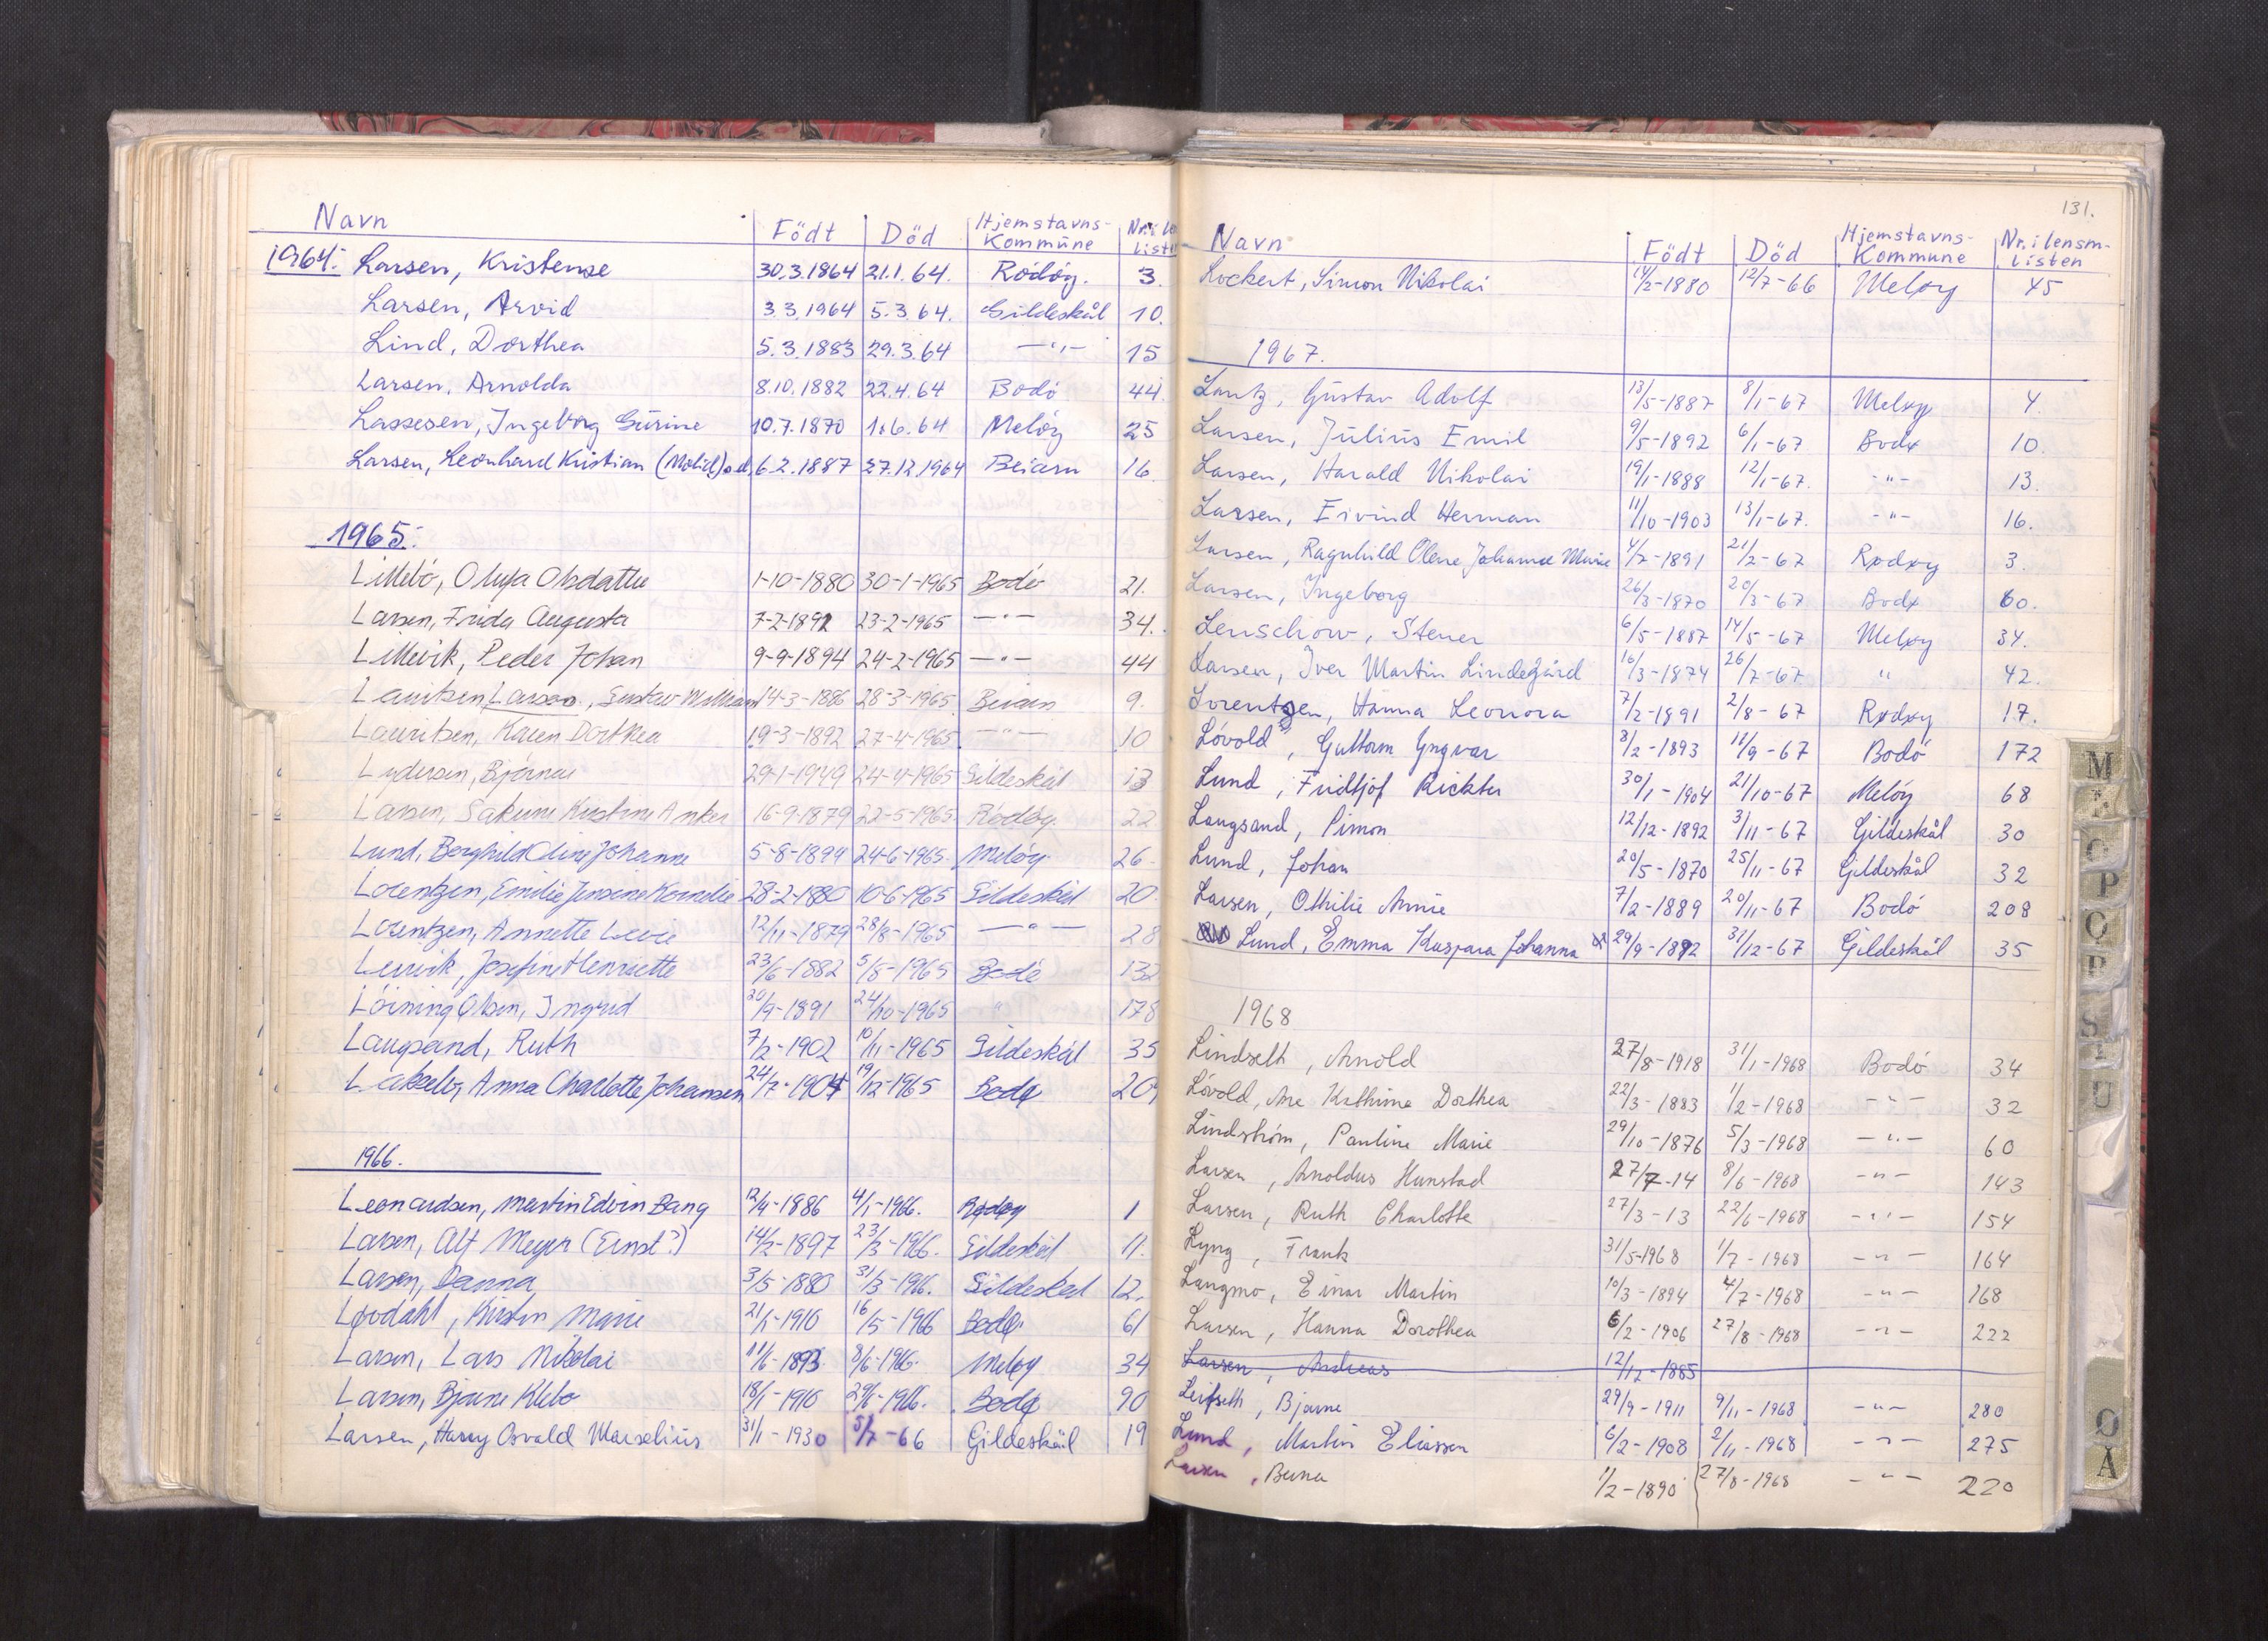 Navn Födt Död Hjemstavns-Kommune Nr. i
1964: Larsen, Kristense 30.3.1864 21.1.64. Rödöy. 3.
Larsen, Arvid 3.3.1964 5.3.64. Gildeskål 10.
Lind, Dorthea 5.3.1883 29.3.64 —"— 15
Larsen, Arnolda 8.10.1882 22.4.64 Bodö 44.
Lassesen, Ingeborg Gurine 10.7.1870 1.6.64 Melöy 25
Larsen, Leonhard Kristian 6.2.1887 27.12.1964 Beiarn 16.
1965:
Lillebö, Olufa Olsdatter 1-10-1880 30-1-1965 Bodö 21.
Larsen, Frida Augusta 7-2-1892 23-2-1965 —"— 34.
Lillevik, Peder Johan 9-9-1894 24-2-1965 —"— 44
Lauritsen Larsen, Gustav William 14-3-1886 28-3-1965 Beiarn 9.
Lauritsen, Karen Dorthea 19-3-1892 27-4-1965 —"— 10
Lydersen, Björnar 29-1-1949 24-4-1965 Gildeskål 13
Larsen, Kristine Anker 16-9-1879 22-5-1965 Rödöy 22
Lund, Borghild Oline Johanne 5-8-1894 24-6-1965. Melöy 26.
Lorentzen, Emilie Jensine Kornelie 28-2-1880 10-6-1965 Gildeskål 20.
Lorentzen, Annette 12/11-1879 28/8-1965 —"— 28
Josefine Henriette 23/6-1882 5/8-1965 Bodö 132
Löining Olsen, Ingrid 20/9-1891 24/10-1965 " 178
Langsand, Ruth 7/2-1902 10/11-1965 Gildeskål 35
Anna Charlotte Johansen 24/7-1904 19/12-1965 Bodø
1966.
Leonardsen, Martin Edvin Bang 12/4-1886 4/1-1966. Rødøy 1
Larsen, Alf Meyer (Ernst?) 14/2-1897 23/3-1966. Gildeskål 11.
Larsen, Danna 3/5-1880 31/3-1966. Gildeskål 12.
Løvdahl, Kirsten Marie 21/1-1910 16/5-1966 Bodø. 61
Larsen, Lars Nikolai 11/6-1893 8/6-1966. Meløy 34
Larsen, Bjarne Klebo 18/1-1910 29/1-1966. Bodø 90
Larsen, Harry Osvald Marselius 31/1-1930 5/7-66 Gildeskål 19
131.
Navn Födt Död Hjemstavns-Kommune Nr. i lensm-listen
Lockert, Simon Nikolai 14/2-1880 12/7-66 Meløy 45
1967.
Lantz, Gustav Adolf 13/5-1887 8/1-67 Meløy 4.
Larsen, Julius Emil 9/5-1892 6/1-67 Bodø 10.
Larsen, Harald Nikolai 19/1-1888 12/1-67. -"- 13.
Larsen, Eivind Herman 11/10-1903 13/1-67. -"- 16.
Larsen, Ragnhild Olene Johanne Marie 4/7-1891 21/2-67 Rødøy 3.
Larsen, Ingeborg 26/3-1870 20/3-67 Bodø 60.
Lenschow, Stener 6/5-1887 14/5-67 Meløy 34.
Larsen, Iver Martin Lindegård 16/3-1874 26/7-67 " 42.
Lorentzen, Hanna Leonora 7/2-1891 2/8-67 Rødøy 17.
Lövold, Guttorm Yngvar 8/2-1893 11/9-67 Bodö 172
Lund, Fridtjof Rickter 30/1-1904 21/10-67 Melöy 68
Langsand, Pimon 12/12-1892 3/11-67 Gildeskål 30
Lund, Johan 20/5-1870 25/11-67 Gildeskål 32
Larsen, Othilie Annie 7/2-1889 20/11-67 Bodö 208
Lund, Emma Kaspara Johanna 29/9-1892 31/12-67 Gildeskål 35
1968
Lindseth, Arnold 27/8-1918 31/1-1968 Bodö 34
Lövold, Ane Kathrina Dorthea 22/3-1883 1/2-1968 —"— 32
Lindström, Pauline Marie 29/10-1876 5/3-1968 —"— 60
Larsen, Arnoldus Hunstad 27/7-14 8/6-1968 —"— 143
Larsen, Ruth Charlotte 27/3-13 22/6-1968 —"— 154
Lyng, Frank 31/5-1968 1/7-1968 —"— 164
Langmo, Einar Martin 10/3-1894 4/7-1968 —"— 168
Larsen, Hanna Dorothea 6/2-1906 27/8-1968 —"— 222
Larsen, Andreas 12/12-1885
Leifseth, Bjarne 29/9-1911 9/11-1968 —"— 280
Lund, Martin Eliassen 6/2-1908 2/11-1968 —"— 275
Larsen, Berna 1/2-1890 27/8-1968 —"— 220
M
O
P
Q
R
S
U
Ø
A